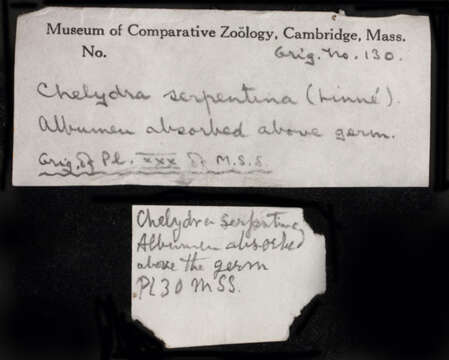 Museum of Comparative Zoölogy, Cambridge, Mass.
No. Orig. No. 130.
Chelydra serpentina (Linné).
Albumen absorbed above germ.
Orig. of Pl. xxx of M.S.S.
Chelydra serpentina
Albumen absorbed
above the germ
Pl 30 MSS.